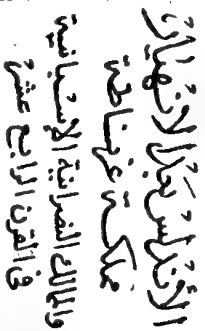 الاندلس قبل الانهيار
مملكة غرناطة
والممالك النصرانية الاسبانية
فى القرن الرابع عشر